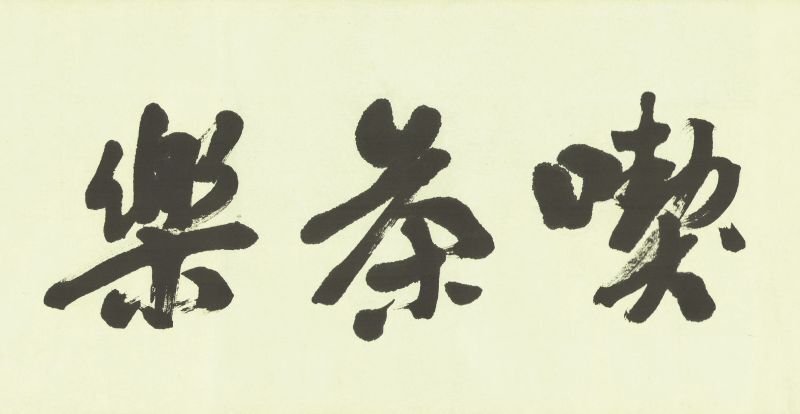 喫茶樂